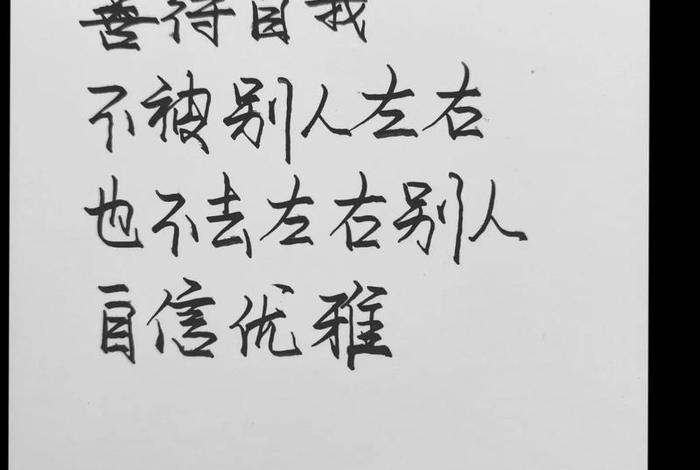 善待自我
不被别人左右
也不去左右别人
自信优雅